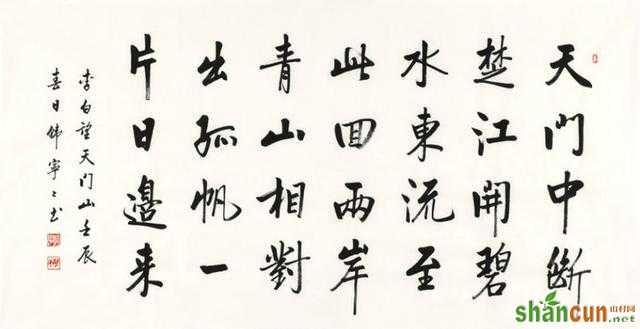 天門中斷
楚江開碧
水東流至
此回兩岸
青山相對
出孤帆一
片日邊来
李白望天門山壬辰
春日寧书
shancun
山村网
.net